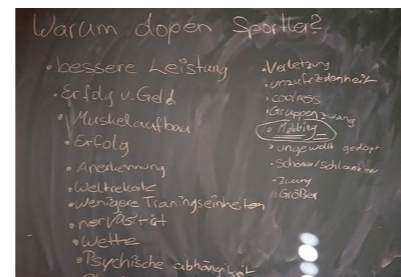 Warum dopen Sportler?
• bessere Leistung
• Erfolg u. Geld
• Muskelaufbau
• Erfolg
• Anerkennung
• Weltrekorde
• Wenigere Traningseinheiten
• nervösität
• Wette
• Psychische abhängigkeit
• Verletzung
• unzufriedenheit
• coolness
• Gruppenzwang
• Mobbing
• ungewollt gedopt
• Schöner/Schlanker
• Zwang
• Größer